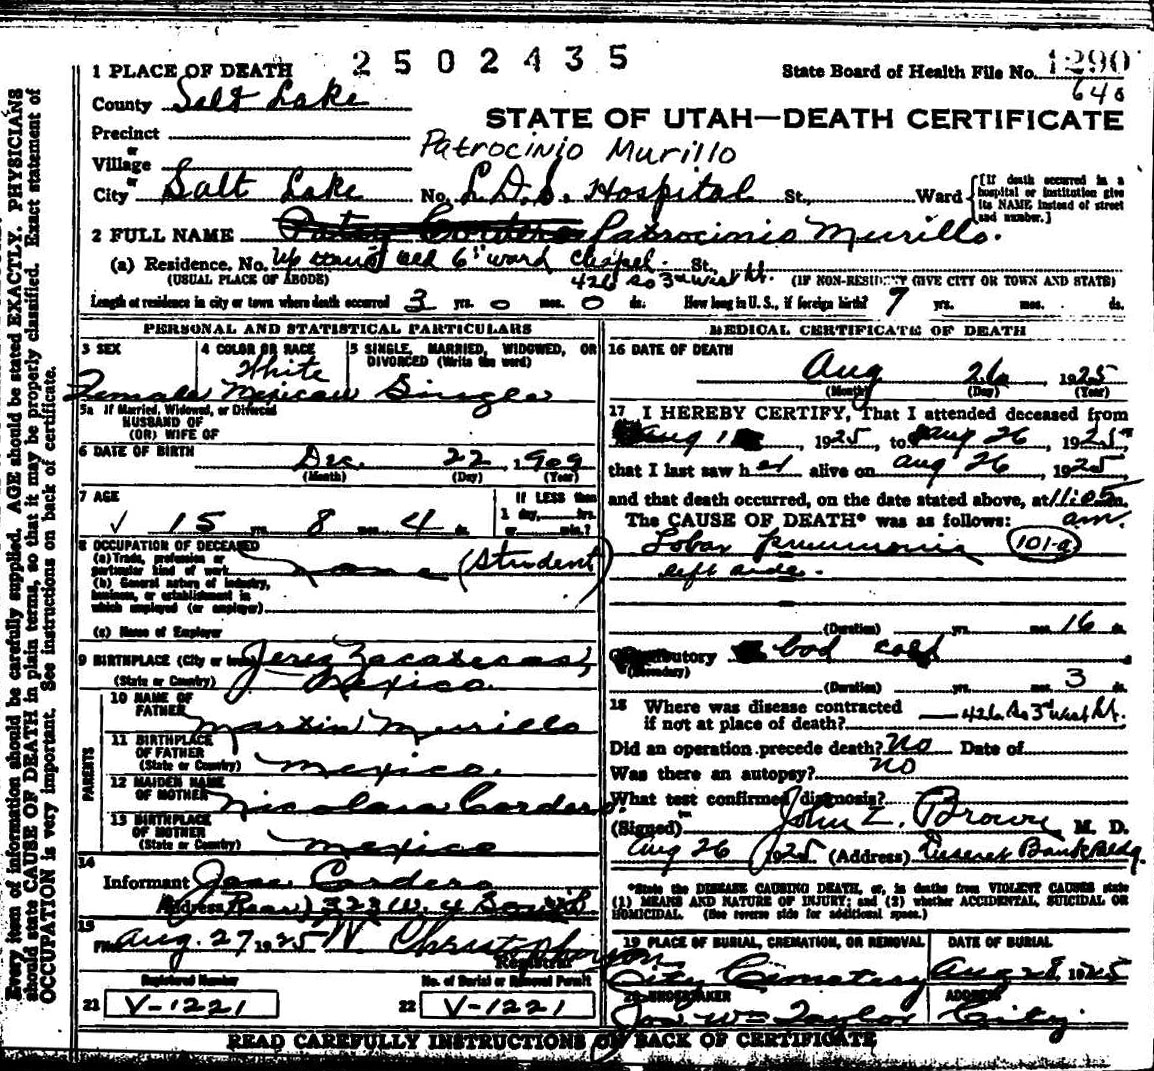 2502435
State Board of Health File No. 1290
640
1 PLACE OF DEATH
County Salt Lake
STATE OF UTAH—DEATH CERTIFICATE
Precinct
or
Village
Patrocinio Murillo
or
City Salt Lake No. L.D.S. Hospital St., Ward
[If death occurred in a hospital or institution give its NAME instead of street and number.]
2 FULL NAME Patsy Cordero Patrocinio Murillo.
(a) Residence. No. Up stairs old 6th ward chapel. St.
426 So 3rd West St.
(USUAL PLACE OF ABODE) (IF NON-RESIDENT GIVE CITY OR TOWN AND STATE)
Length of residence in city or town where death occurred 3 yrs. 0 mos. 0 ds. How long in U. S., if foreign birth? 9 yrs. mos. ds.
PERSONAL AND STATISTICAL PARTICULARS
3 SEX
Female
4 COLOR OR RACE
White
Mexican
5 SINGLE, MARRIED, WIDOWED, OR DIVORCED (Write the word)
Single
5a If Married, Widowed, or Divorced
HUSBAND OF
(OR) WIFE OF
6 DATE OF BIRTH Dec. 22, 1909
(Month) (Day) (Year)
7 AGE
15 yrs. 8 mos. 4 ds.
If LESS than
1 day, hrs.
or min.?
8 OCCUPATION OF DECEASED
(a) Trade, profession or
particular kind of work none (Student)
(b) General nature of industry,
business, or establishment in
which employed (or employer)
(c) Name of Employer
9 BIRTHPLACE (City or town) Jerez Zacatecas,
(State or Country) Mexico.
PARENTS
10 NAME OF
FATHER Martin Murillo
11 BIRTHPLACE
OF FATHER
(State or Country) Mexico.
12 MAIDEN NAME
OF MOTHER Nicolasa Cordero
13 BIRTHPLACE
OF MOTHER
(State or Country) Mexico
14
Informant Jose Cordero
Address (Rear) 323 W. 4 South
15
Filed Aug. 27 1925 W Christopherson
Registrar
Registered Number
No. of Burial or Removal Permit
21 V-1221
22 V-1221
MEDICAL CERTIFICATE OF DEATH
16 DATE OF DEATH
Aug 26, 1925
(Month) (Day) (Year)
17 I HEREBY CERTIFY, That I attended deceased from
Aug 1, 1925, to Aug 26, 1925,
that I last saw her alive on Aug 26, 1925,
and that death occurred, on the date stated above, at 11:05 m.
The CAUSE OF DEATH* was as follows: am.
Lobar pneumonia 101-a
left side.
(Duration) yrs. mos. 16 ds.
Contributory bad cold
(Secondary)
(Duration) yrs. mos. 3 ds.
18 Where was disease contracted
if not at place of death? 426 So 3rd West St.
Did an operation precede death? No Date of
Was there an autopsy? No
What test confirmed diagnosis?
(Signed) John Z. Brown M. D.
Aug 26, 1925 (Address) Deseret Bank Bldg.
*State the DISEASE CAUSING DEATH, or, in deaths from VIOLENT CAUSES state
(1) MEANS AND NATURE OF INJURY; and (2) whether ACCIDENTAL, SUICIDAL OR
HOMICIDAL. (See reverse side for additional space.)
19 PLACE OF BURIAL, CREMATION, OR REMOVAL
City Cemetery
DATE OF BURIAL
Aug 28, 1925
20 UNDERTAKER
Jos Wm Taylor
ADDRESS
City
READ CAREFULLY INSTRUCTIONS ON BACK OF CERTIFICATE
Every item of information should be carefully supplied. AGE should be stated EXACTLY. PHYSICIANS
should state CAUSE OF DEATH in plain terms, so that it may be properly classified. Exact statement of
OCCUPATION is very important. See instructions on back of certificate.